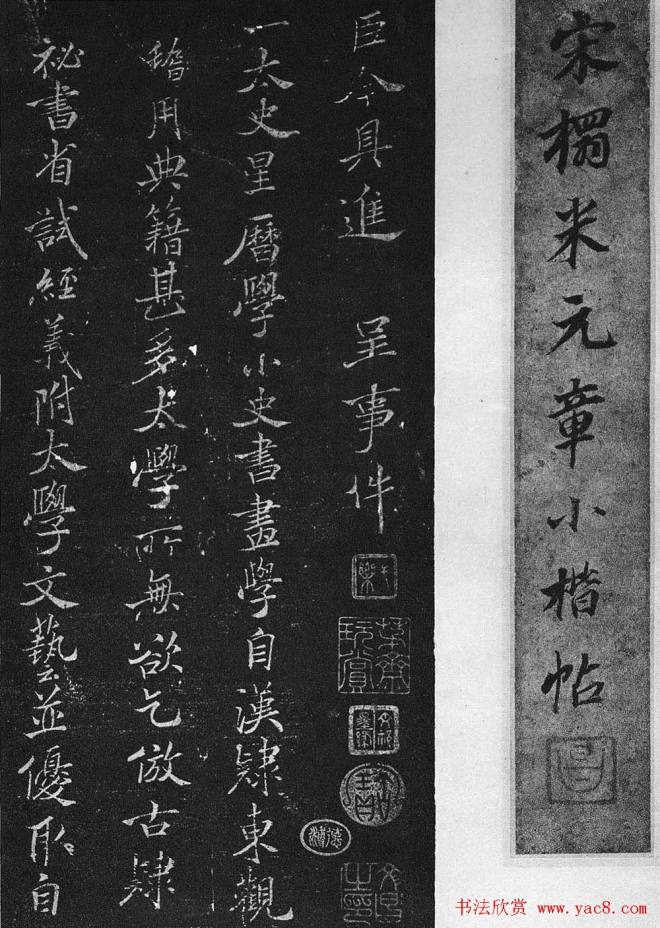 宋搨米元章小楷帖
臣今具進　呈事件
一太史星曆學小史書畫學自漢隸東觀
稽用典籍甚多太學所無欲乞倣古隸
祕書省試經義附太學文藝並優取自
書法欣賞 www.yac8.com